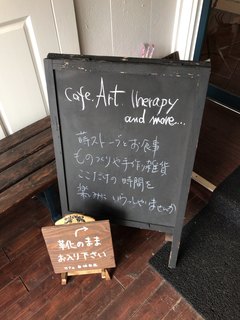 Cafe. Art. Therapy
and more...
薪ストーブとお食事
ものづくりや手作り雑貨
ここだけの時間を
楽しみに いらっしゃいませんか
靴のまま
お入り下さい